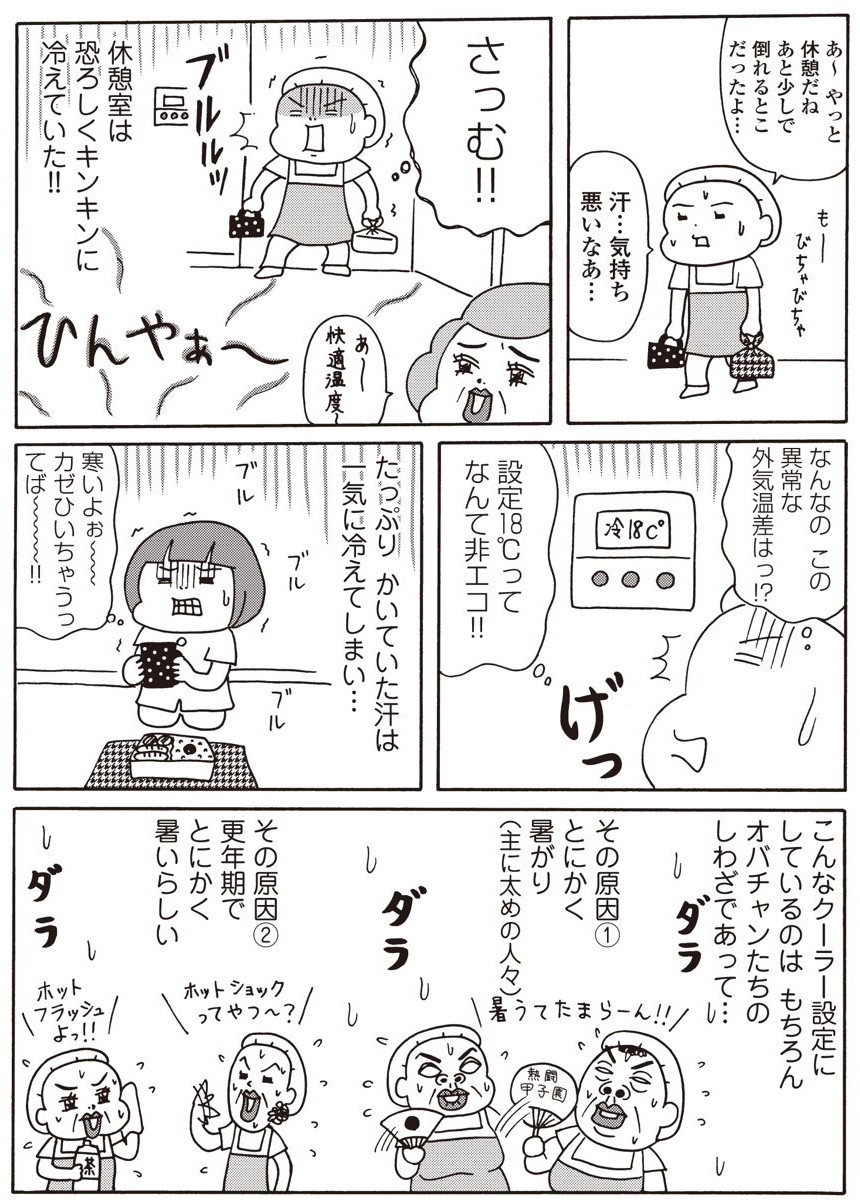 あ〜 やっと
休憩だね
あと少しで
倒れるとこ
だったよ…
もー
びちゃびちゃ
汗…気持ち
悪いなあ…
さっむ!!
ブルルッ
休憩室は
恐ろしくキンキンに
冷えていた!!
ひんやぁ〜
あ〜
快適温度〜
なんなの この
異常な
外気温差はっ!?
冷18C°
設定18℃って
なんて非エコ!!
げっ
たっぷり かいていた汗は
一気に冷えてしまい…
ブル
ブル
ブル
寒いよぉ〜〜
カゼひいちゃうっ
てば〜〜〜!!
こんなクーラー設定に
しているのは もちろん
オバチャンたちの
しわざであって…
ダラ
その原因①
とにかく
暑がり
(主に太めの人々)
暑うてたまらーん!!
熱闘
甲子園
ダラ
その原因②
更年期で
とにかく
暑いらしい
ホットショック
ってやつ〜?
ダラ
ホット
フラッシュ
よっ!!
茶